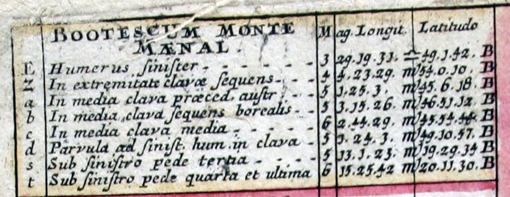 BOOTES CUM MONTE MÆNAL. Mag. Longit. Latitudo
E Humerus sinister - - - - - 3 29.19.31. ♎ 49.1.42. B
Z In extremitate clavæ sequens - - - 4 4.23.29. ♏ 54.0.10. B
a In media clava præced. austr - - - 5 1.25.3. ♏ 45.6.18. B
b In media clava sequens borealis - 5 3.15.26. ♏ 46.51.12. B
c In media clava media - - - - 6 2.44.29. ♏ 45.54.44. B
d Parvula ad sinist. hum. in clava - 5 1.24.3. ♏ 49.10.57. B
s Sub sinistro pede tertia - - - 5 13.1.23. ♏ 19.29.34 B
t Sub sinistro pede quarta et ultima 6 15.25.42 ♏ 20.11.30. B